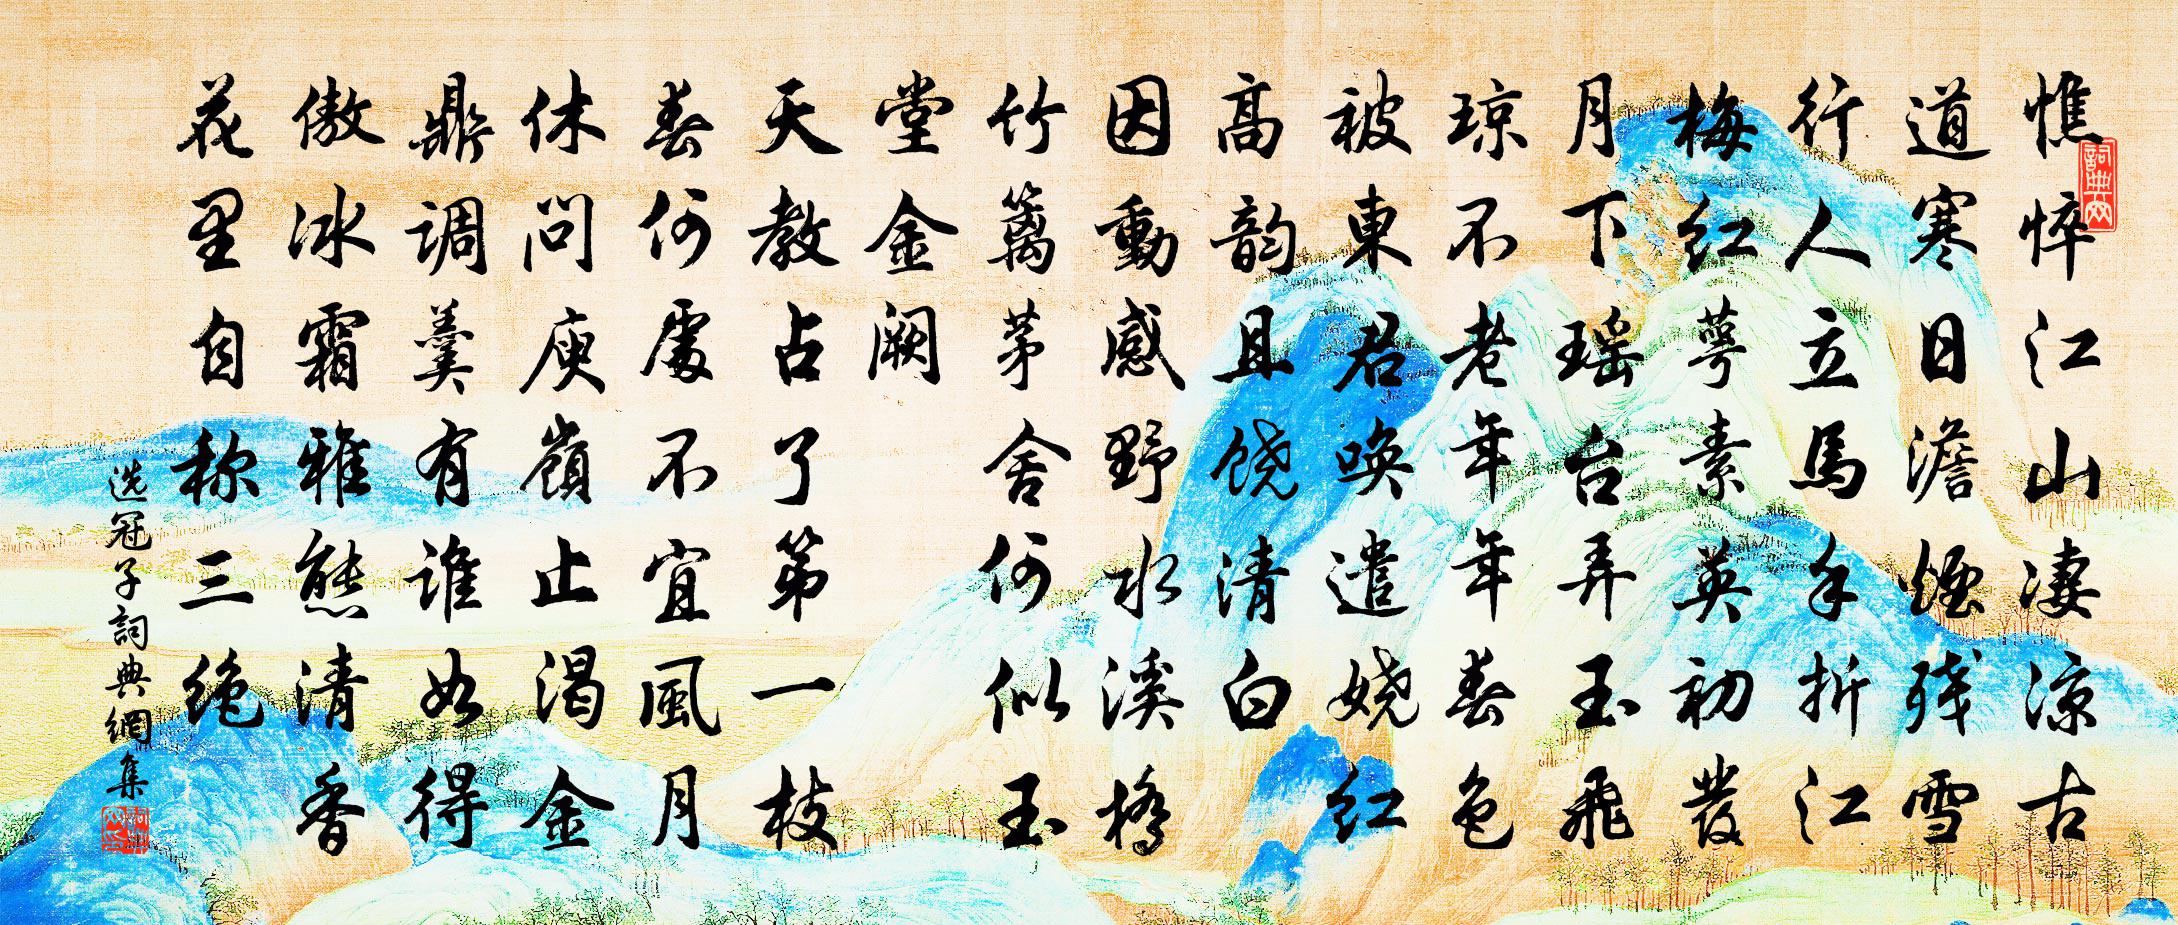 憔悴江山凄凉古
道寒日澹煙残雪
行人立馬手折江
梅紅萼素英初發
月下瑶台弄玉飛
琼不老年年春色
被東君唤遣娆紅
高韵且饶清白
因動感野水溪橋
竹篱茅舍何似玉
堂金阙
天教占了第一枝
春何處不宜風月
休问庾嶺止渴金
鼎调羹有谁如得
傲冰霜雅態清香
花里自称三绝
选冠子詞典網集
詞典网